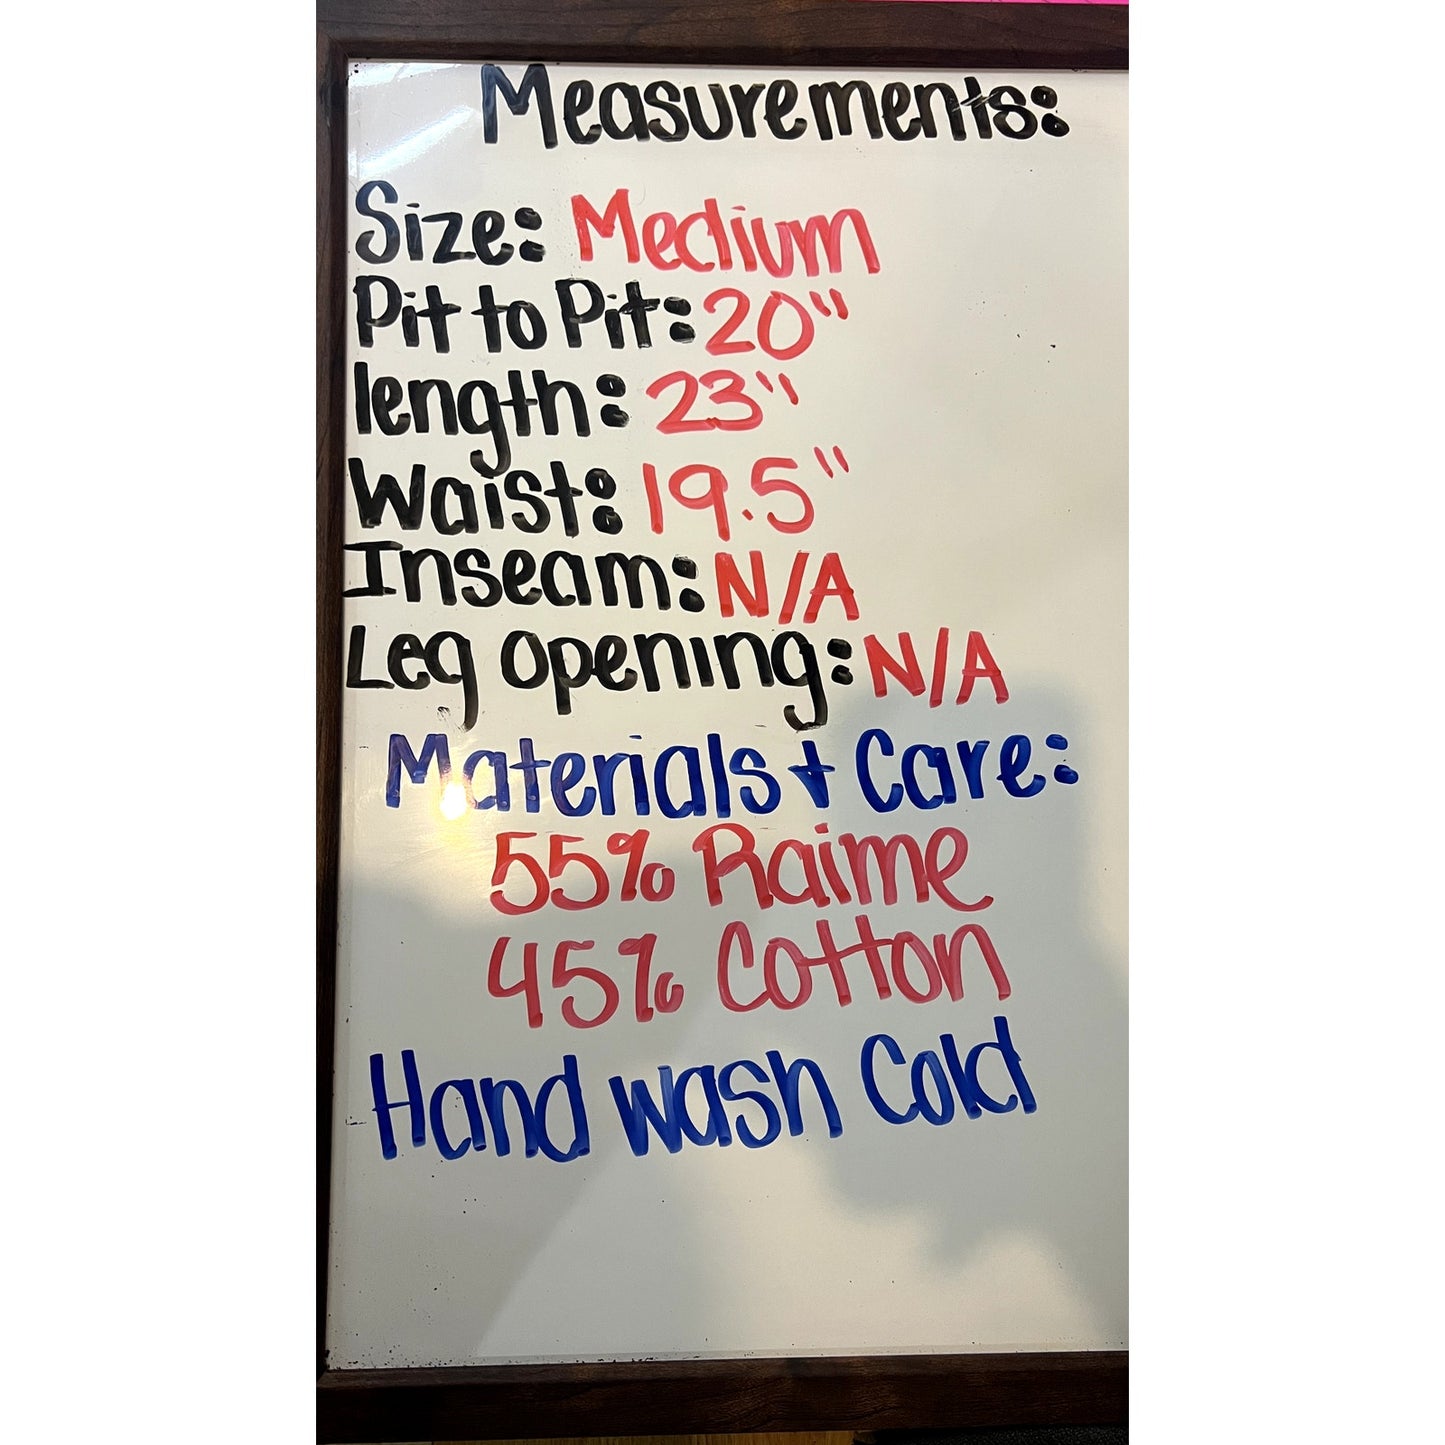 Measurements:
Size: Medium
Pit to Pit: 20"
length: 23"
Waist: 19.5"
Inseam: N/A
Leg opening: N/A
Materials + Care:
55% Raime
45% Cotton
Hand wash Cold